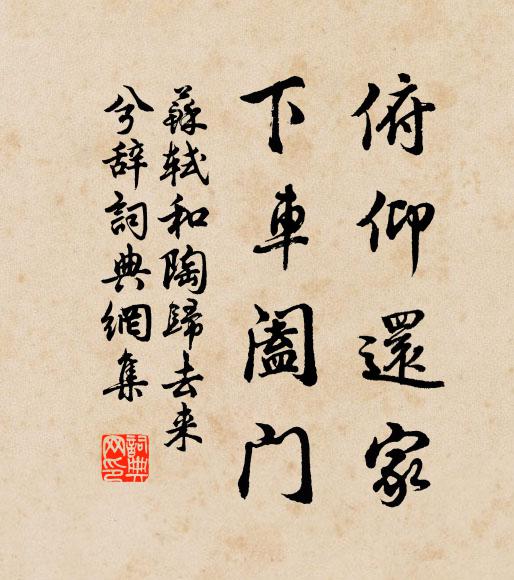 俯仰還家
下車闔门
蘇軾和陶歸去来
兮辞詞典網集
詞典
网印